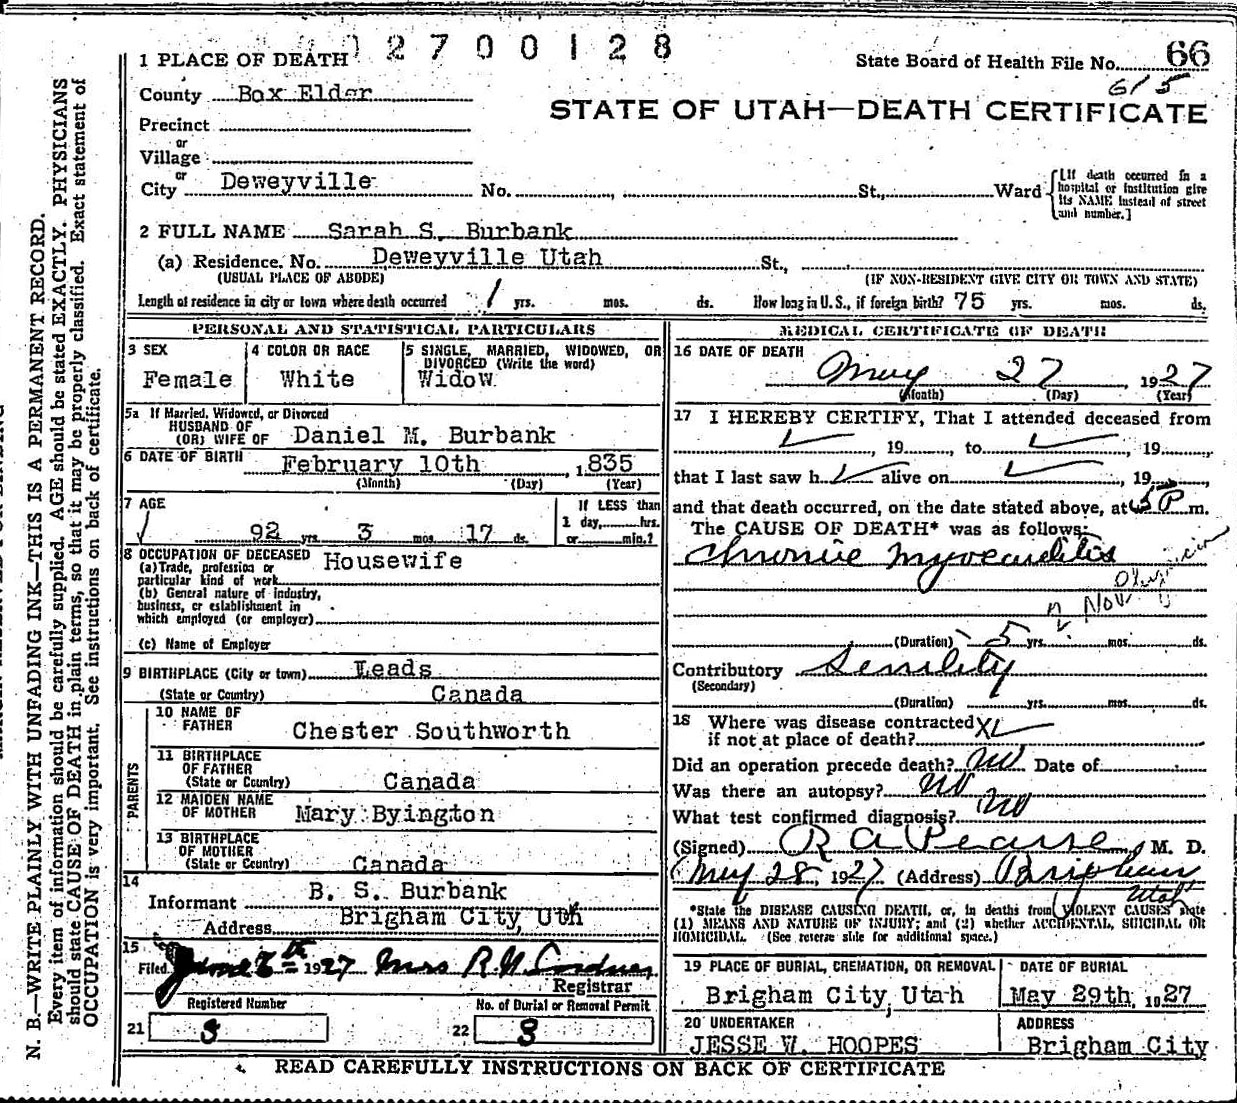 2700128
1 PLACE OF DEATH
State Board of Health File No. 66
615
County Box Elder
STATE OF UTAH—DEATH CERTIFICATE
Precinct
or
Village
or
City Deweyville No. , St., Ward
[If death occurred in a hospital or institution give its NAME instead of street and number.]
2 FULL NAME Sarah S. Burbank
(a) Residence. No. Deweyville Utah St.,
(USUAL PLACE OF ABODE) (IF NON-RESIDENT GIVE CITY OR TOWN AND STATE)
Length of residence in city or town where death occurred 1 yrs. mos. ds. How long in U. S., if foreign birth? 75 yrs. mos. ds.
PERSONAL AND STATISTICAL PARTICULARS
3 SEX
Female
4 COLOR OR RACE
White
5 SINGLE, MARRIED, WIDOWED, OR
DIVORCED (Write the word)
Widow
5a If Married, Widowed, or Divorced
HUSBAND OF
(OR) WIFE OF Daniel M. Burbank
6 DATE OF BIRTH February 10th 1835
(Month) (Day) (Year)
7 AGE
92 yrs. 3 mos. 17 ds.
If LESS than
1 day, hrs.
or min.?
8 OCCUPATION OF DECEASED Housewife
(a) Trade, profession or
particular kind of work
(b) General nature of industry,
business, or establishment in
which employed (or employer)
(c) Name of Employer
9 BIRTHPLACE (City or town) Leads
(State or Country) Canada
PARENTS
10 NAME OF
FATHER Chester Southworth
11 BIRTHPLACE
OF FATHER
(State or Country) Canada
12 MAIDEN NAME
OF MOTHER Mary Byington
13 BIRTHPLACE
OF MOTHER
(State or Country) Canada
14
Informant B. S. Burbank
Address Brigham City, Uth
15
Filed June 6th 1927 Mrs R. N.
Registrar
Registered Number
21 8
No. of Burial or Removal Permit
22 8
MEDICAL CERTIFICATE OF DEATH
16 DATE OF DEATH
May 27, 1927
(Month) (Day) (Year)
17 I HEREBY CERTIFY, That I attended deceased from
, 19 to , 19
that I last saw h alive on , 19
and that death occurred, on the date stated above, at 5 P m.
The CAUSE OF DEATH* was as follows:
Chronic Myocarditis
No Physician
(Duration) 5 yrs. mos. ds.
Contributory Senility
(Secondary)
(Duration) yrs. mos. ds.
18 Where was disease contracted
if not at place of death?
Did an operation precede death? no Date of
Was there an autopsy? no
What test confirmed diagnosis? no
(Signed) R A Pearse, M. D.
May 28, 1927 (Address) Brigham
Utah
*State the DISEASE CAUSING DEATH, or, in deaths from VIOLENT CAUSES state
(1) MEANS AND NATURE OF INJURY; and (2) whether ACCIDENTAL, SUICIDAL OR
HOMICIDAL. (See reverse side for additional space.)
19 PLACE OF BURIAL, CREMATION, OR REMOVAL
Brigham City, Utah
DATE OF BURIAL
May 29th, 1927
20 UNDERTAKER
JESSE W. HOOPES
ADDRESS
Brigham City
READ CAREFULLY INSTRUCTIONS ON BACK OF CERTIFICATE
N. B.—WRITE PLAINLY WITH UNFADING INK—THIS IS A PERMANENT RECORD.
Every item of information should be carefully supplied. AGE should be stated EXACTLY. PHYSICIANS
should state CAUSE OF DEATH in plain terms, so that it may be properly classified. Exact statement of
OCCUPATION is very important. See instructions on back of certificate.